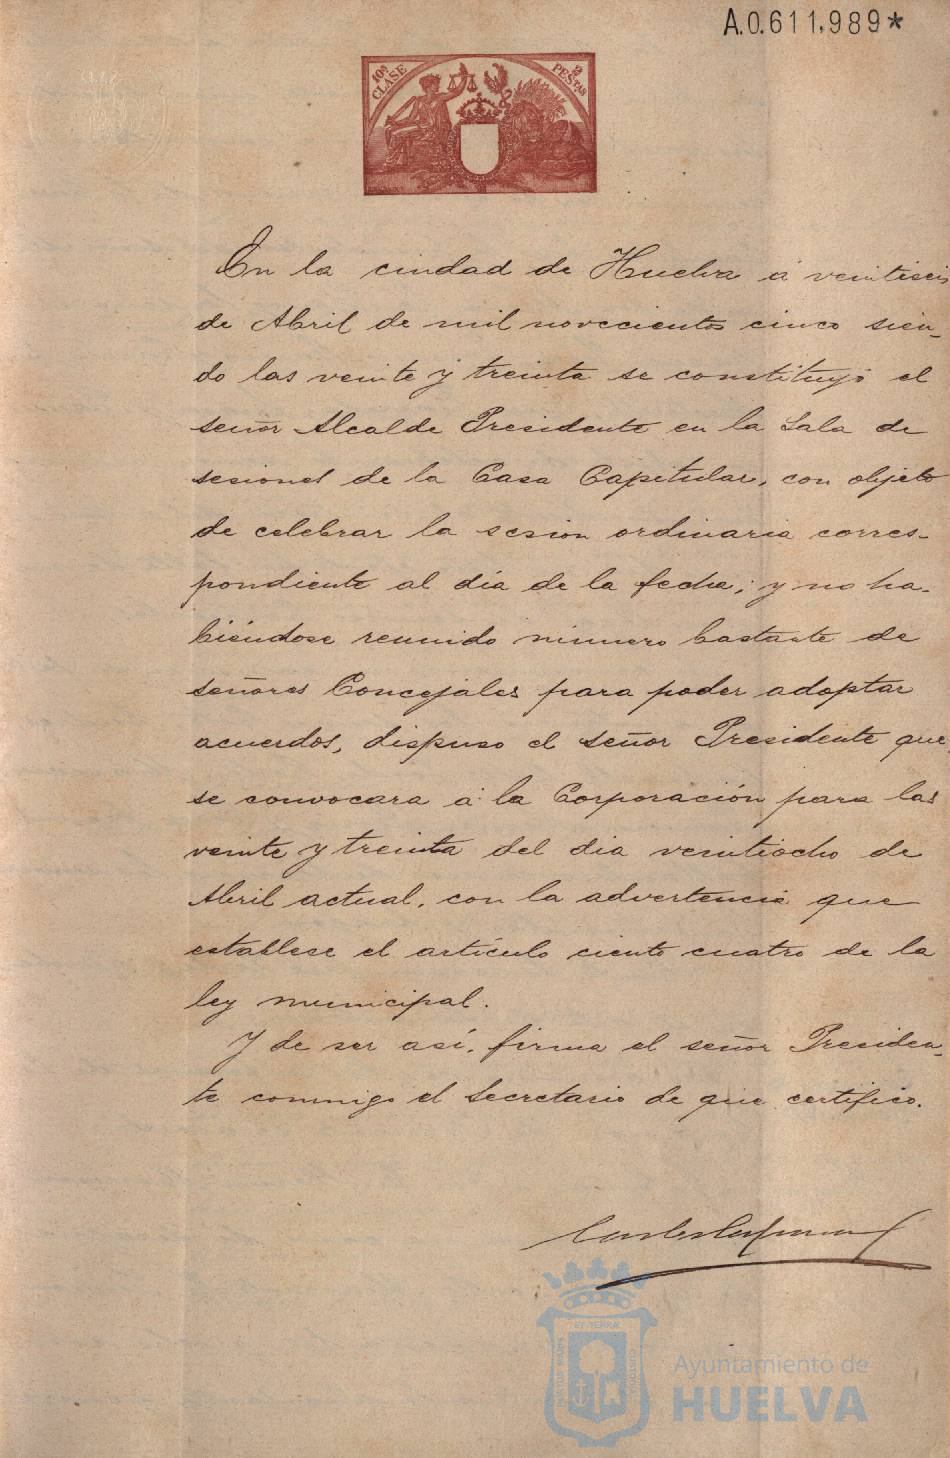 A.0.611.989*
10ª CLASE
2 PESTAS
En la ciudad de Huelva á veintiseis
de Abril de mil novecientos cinco sien-
do las veinte y treinta se constituyó el
señor Alcalde Presidente en la Sala de
sesiones de la Casa Capitular, con objeto
de celebrar la sesion ordinaria corres-
pondiente al dia de la fecha; y no ha-
biéndose reunido número bastante de
señores Concejales para poder adoptar
acuerdos, dispuso el señor Presidente que
se convocara á la Corporación para las
veinte y treinta del dia veintiocho de
Abril actual, con la advertencia que
establese el artículo ciento cuatro de la
ley municipal.
Y de ser así, firma el señor Presiden-
te conmigo el Secretario de que certifico.
ET TERRÆ
PORTUS MARIS
CUSTODIA
Ayuntamiento de
HUELVA